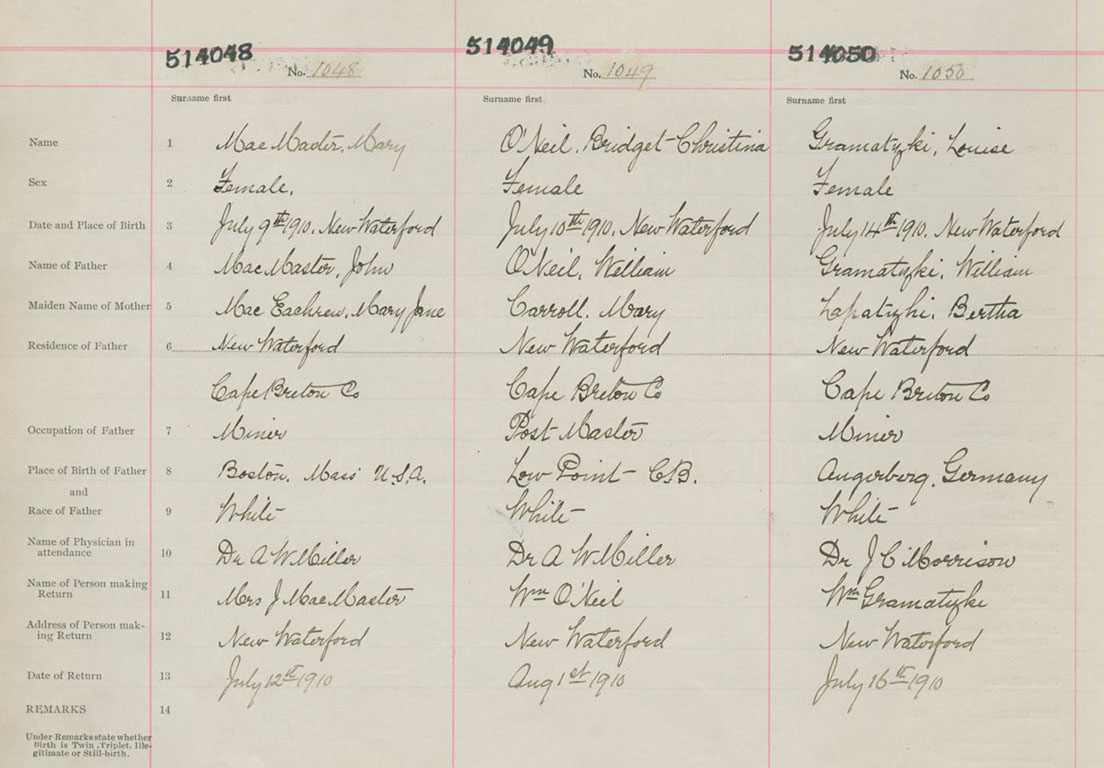 514048 514049 514050
No. 1048 No. 1049 No. 1050
Surname first Surname first Surname first
Name 1 MacMaster, Mary O'Neil, Bridget Christina Gramatzki, Louise
Sex 2 Female. Female Female
Date and Place of Birth 3 July 9th 1910. New Waterford July 10th 1910. New Waterford July 14th 1910. New Waterford
Name of Father 4 MacMaster, John O'Neil, William Gramatzki, William
Maiden Name of Mother 5 Mac Eachren, Mary Jane Carroll, Mary Lapatzki, Bertha
Residence of Father 6 New Waterford New Waterford New Waterford
Cape Breton Co Cape Breton Co Cape Breton Co
Occupation of Father 7 Miner Post Master Miner
Place of Birth of Father 8 Boston, Mass U.S.A. Low Point C.B. Angerberg, Germany
and
Race of Father 9 White White White
Name of Physician in
attendance 10 Dr A W Miller Dr A W Miller Dr J C Morrison
Name of Person making
Return 11 Mrs J MacMaster Wm O'Neil Wm Gramatzki
Address of Person mak-
ing Return 12 New Waterford New Waterford New Waterford
Date of Return 13 July 12th 1910 Aug 1st 1910 July 16th 1910
REMARKS 14
Under Remarks state whether
Birth is Twin, Triplet, Ille-
gitimate or Still-birth.